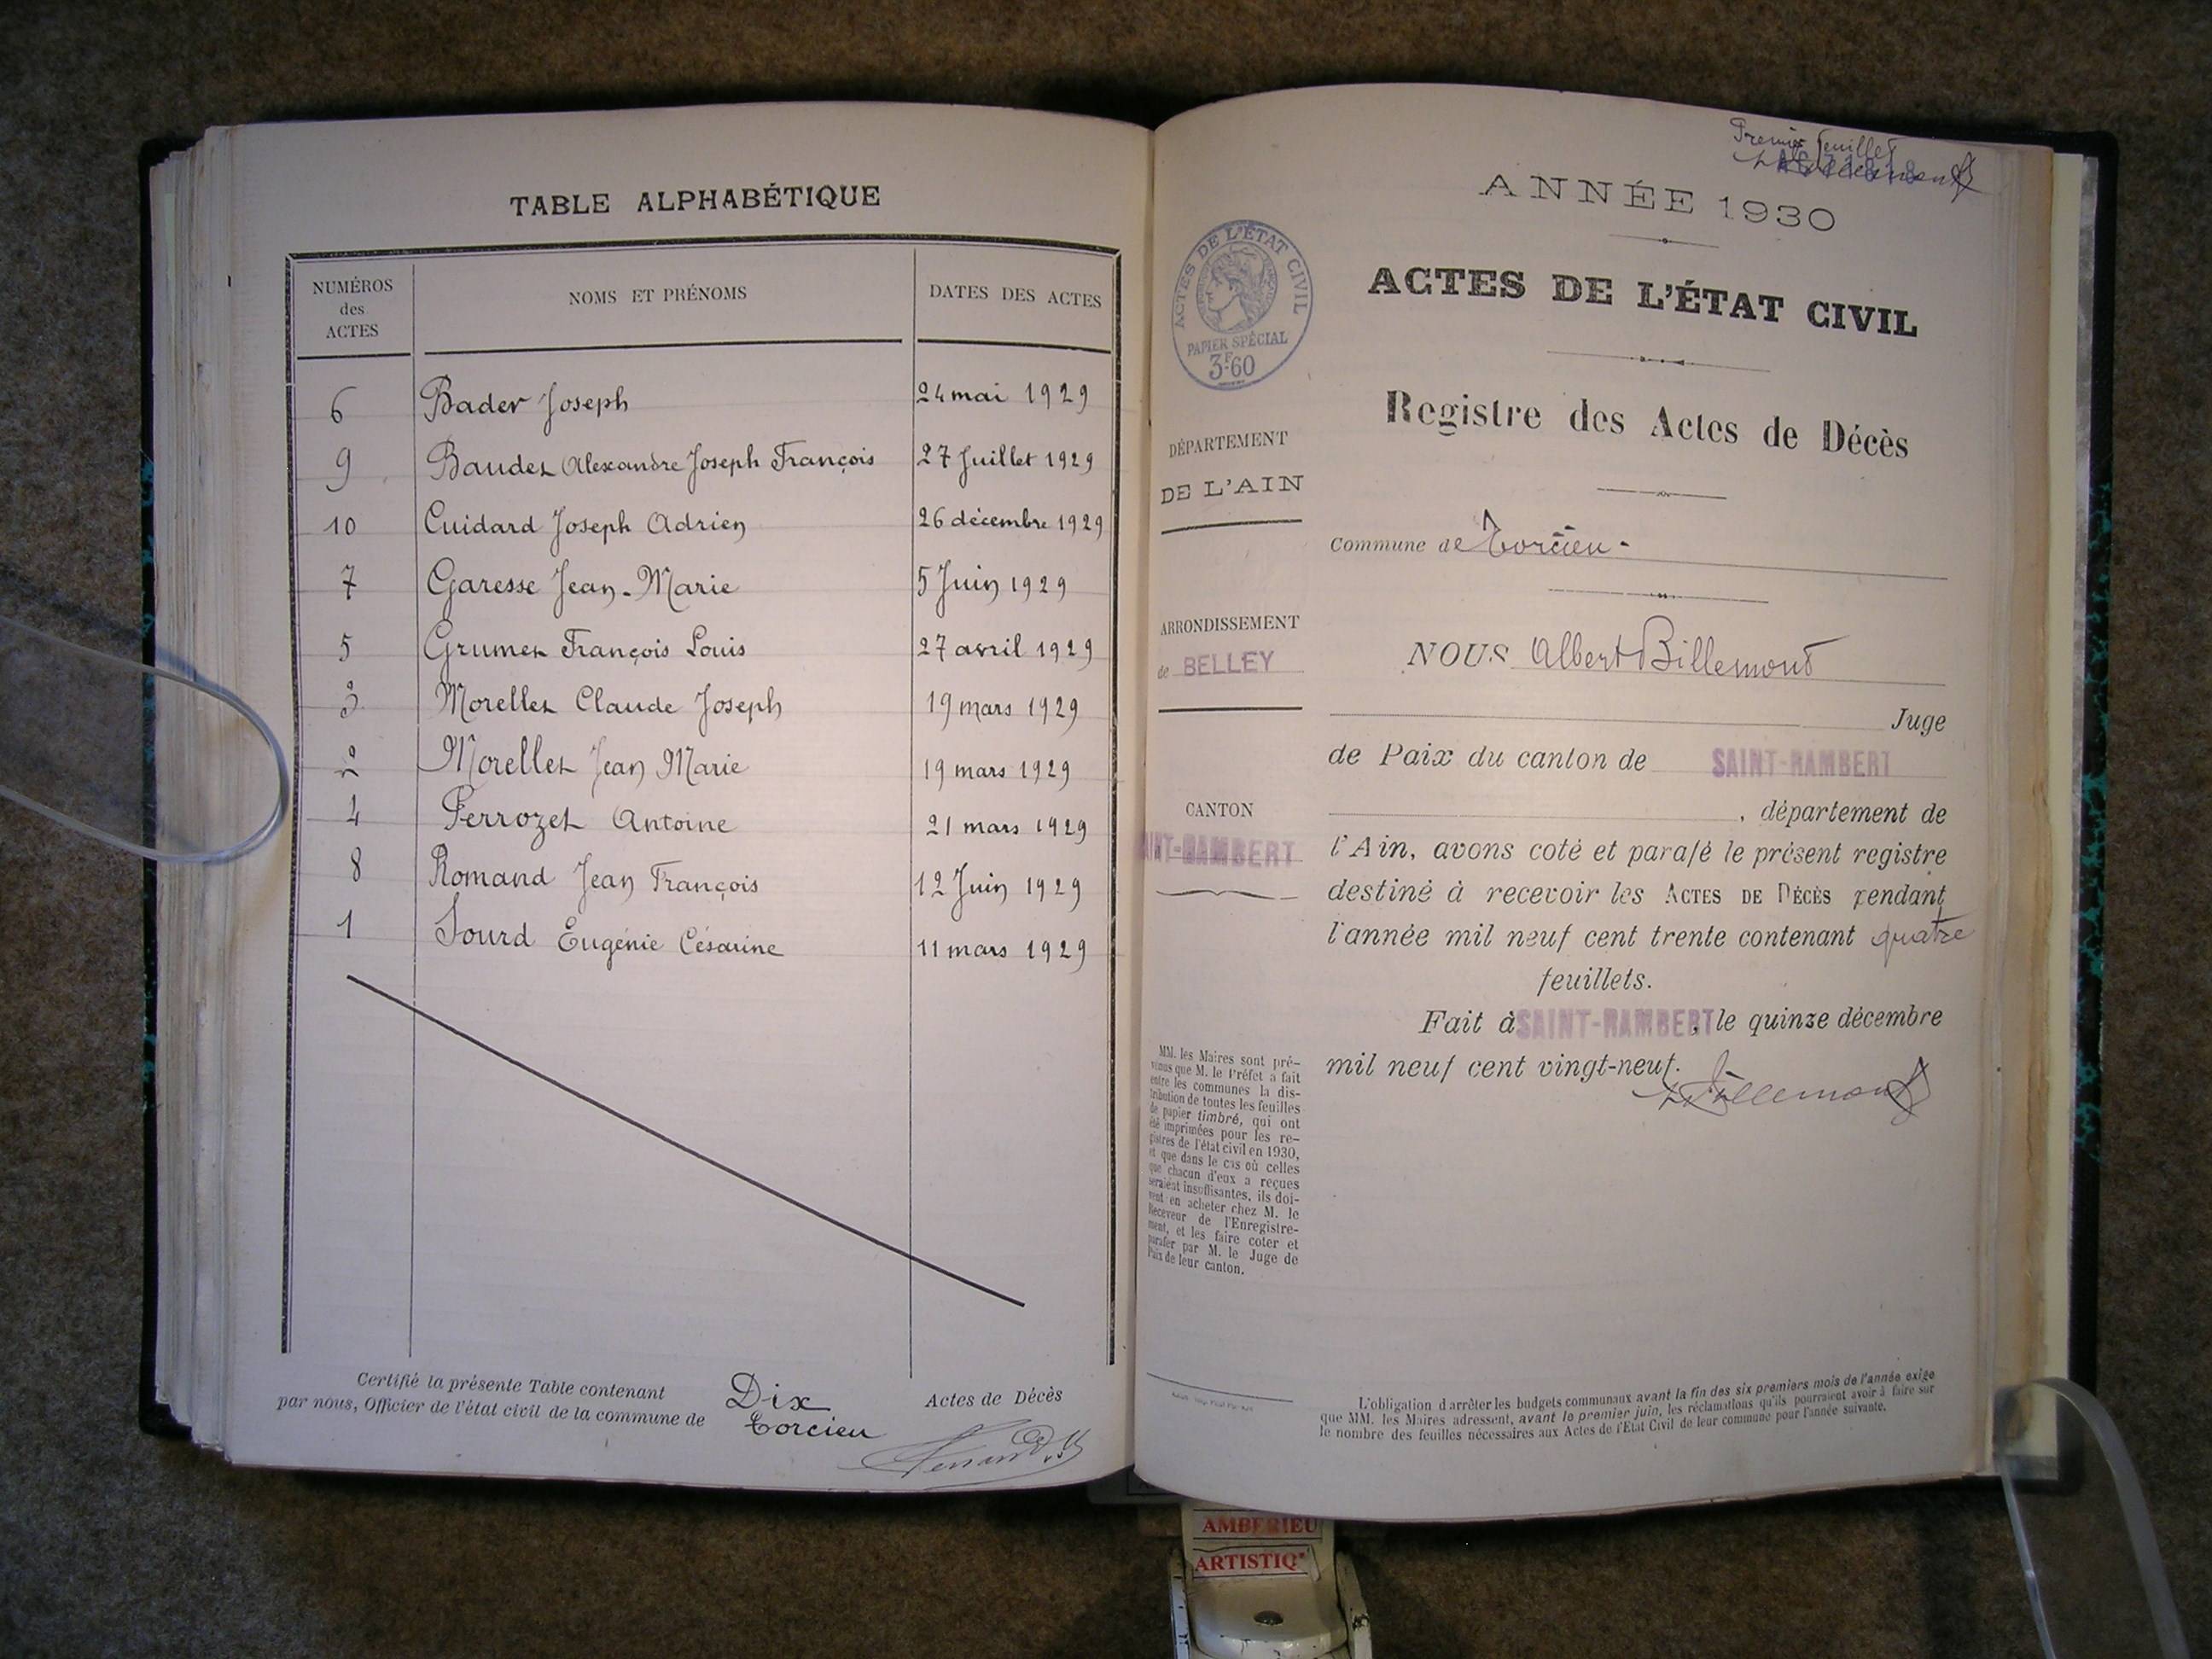 TABLE ALPHABÉTIQUE
NUMÉROS des ACTES
NOMS ET PRÉNOMS
DATES DES ACTES
6 Bader Joseph 24 mai 1929
9 Baudet Alexandre Joseph François 27 Juillet 1929
10 Cuidard Joseph Adrien 26 décembre 1929
7 Garesse Jean-Marie 5 Juin 1929
5 Grumet François Louis 27 avril 1929
3 Morellet Claude Joseph 19 mars 1929
2 Morellet Jean Marie 19 mars 1929
4 Perrozet Antoine 21 mars 1929
8 Romand Jean François 12 Juin 1929
1 Sourd Eugénie Césarine 11 mars 1929
Certifié la présente Table contenant Dix Actes de Décès
par nous, Officier de l'état civil de la commune de Torcieu
Premier feuillet
ANNÉE 1930
ACTES DE L'ÉTAT CIVIL
PAPIER SPÉCIAL
3F60
ACTES DE L'ÉTAT CIVIL
Registre des Actes de Décès
DÉPARTEMENT
DE L'AIN
Commune de Torcieu
ARRONDISSEMENT
de BELLEY
NOUS Albert Billemond
Juge
de Paix du canton de SAINT-RAMBERT
, département de
CANTON
INT-RAMBERT
l'Ain, avons coté et parafé le présent registre
destiné à recevoir les ACTES DE DÉCÈS pendant
l'année mil neuf cent trente contenant quatre
feuillets.
Fait à SAINT-RAMBERT, le quinze décembre
mil neuf cent vingt-neuf.
Billemond
MM. les Maires sont pré-
venus que M. le Préfet a fait
entre les communes la dis-
tribution de toutes les feuilles
de papier timbré, qui ont
été imprimées pour les re-
gistres de l'état civil en 1930,
et que dans le cas où celles
que chacun d'eux a reçues
seraient insuffisantes, ils doi-
vent en acheter chez M. le
Receveur de l'Enregistre-
ment, et les faire coter et
parafer par M. le Juge de
Paix de leur canton.
L'obligation d'arrêter les budgets communaux avant la fin des six premiers mois de l'année exige
que MM. les Maires adressent, avant le premier juin, les réclamations qu'ils pourraient avoir à faire sur
le nombre des feuilles nécessaires aux Actes de l'État Civil de leur commune pour l'année suivante.
AMBERIEU
ARTISTIQ